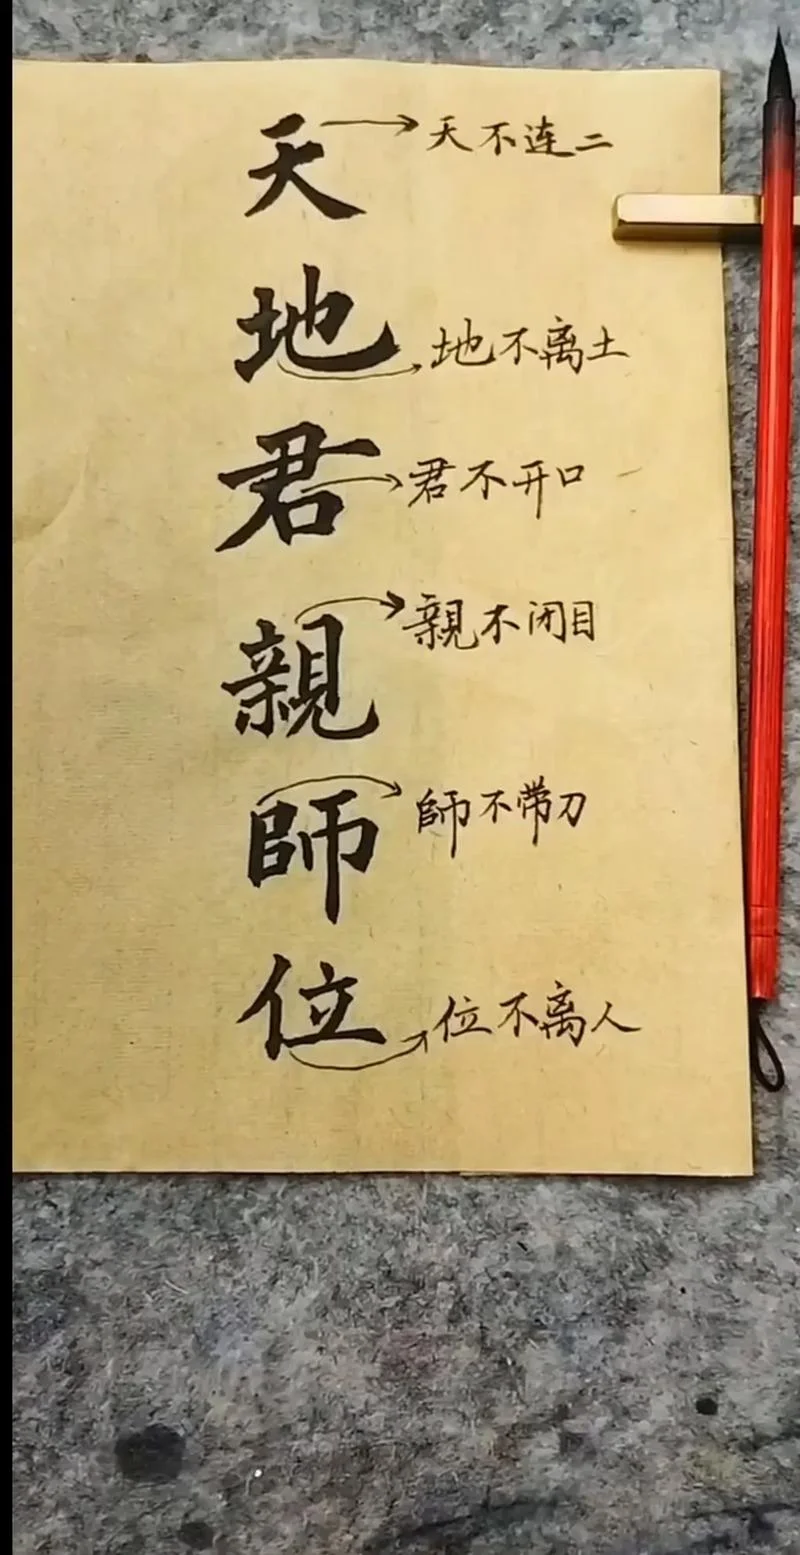 天 天不连二
地 地不离土
君 君不开口
親 親不闭目
師 師不带刀
位 位不离人